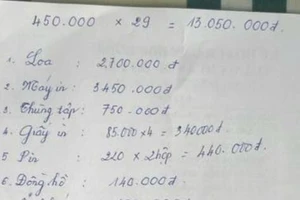 450.000 × 29 = 13.050.000đ.
1. Loa : 2.700.000 đ
2. Máy in : 3450.000đ
3. Thùng tập : 750.000đ
4. Giấy in : 85.000 × 4 = 340000đ.
5 Pin : 220 × 2hộp = 440.000đ.
6. Đồng hồ : 140.000đ.